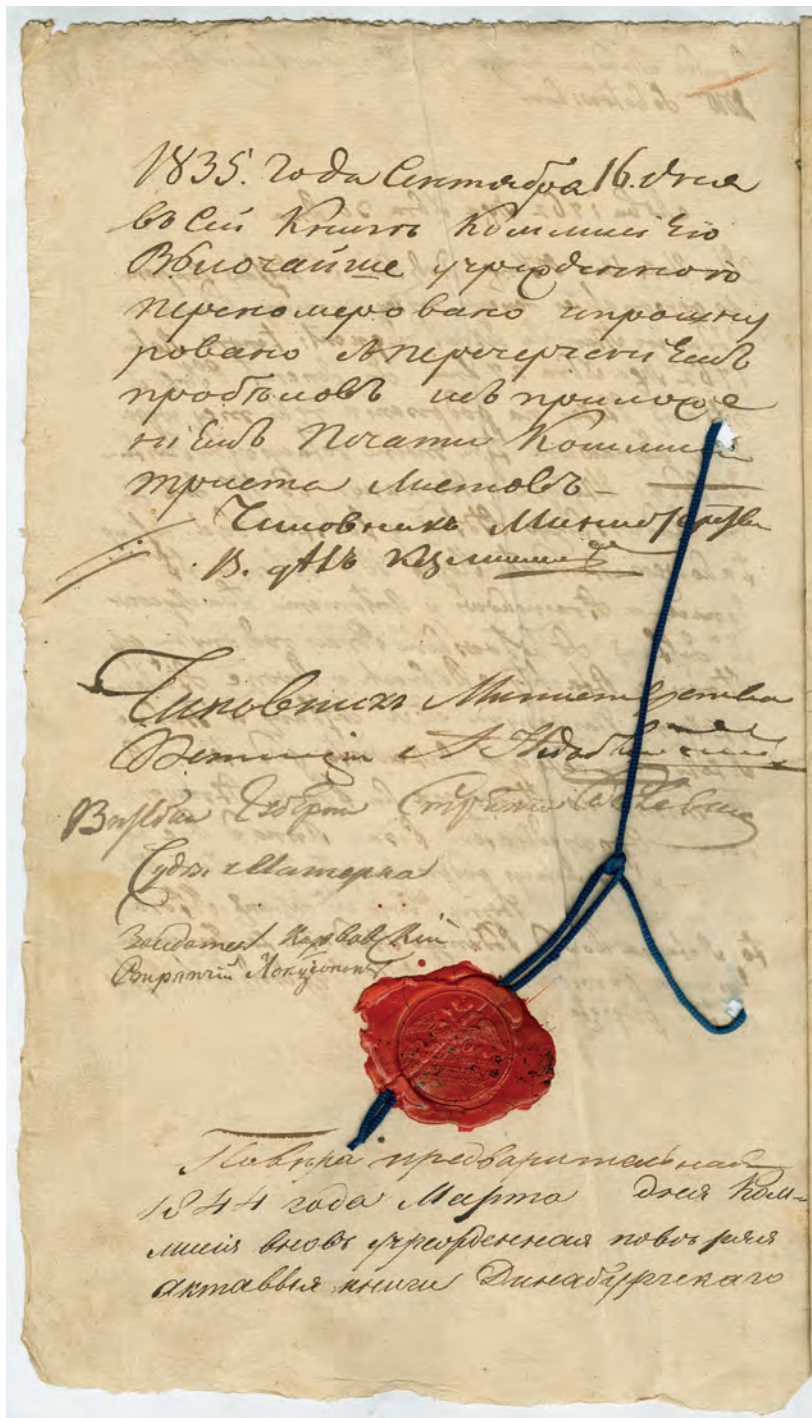 1835. года Сентября 16. дня
въ сей Книгѣ Коммисіею
Высочайше учрежденною
перенумеровано и прошну
ровано съ перечерченіемъ
пробѣловъ и съ приложе
ніемъ Печати Коммисіи
триста листовъ
Чиновникъ Министерства
В. дѣлъ
Чиновникъ Министерства
Юстиціи А.
Судья Матерна
Засѣдатель
Повѣрка предварительная
1844 года Марта дня Ком-
мисія вновь учрежденная повѣряя
актовыя книги Динабургскаго